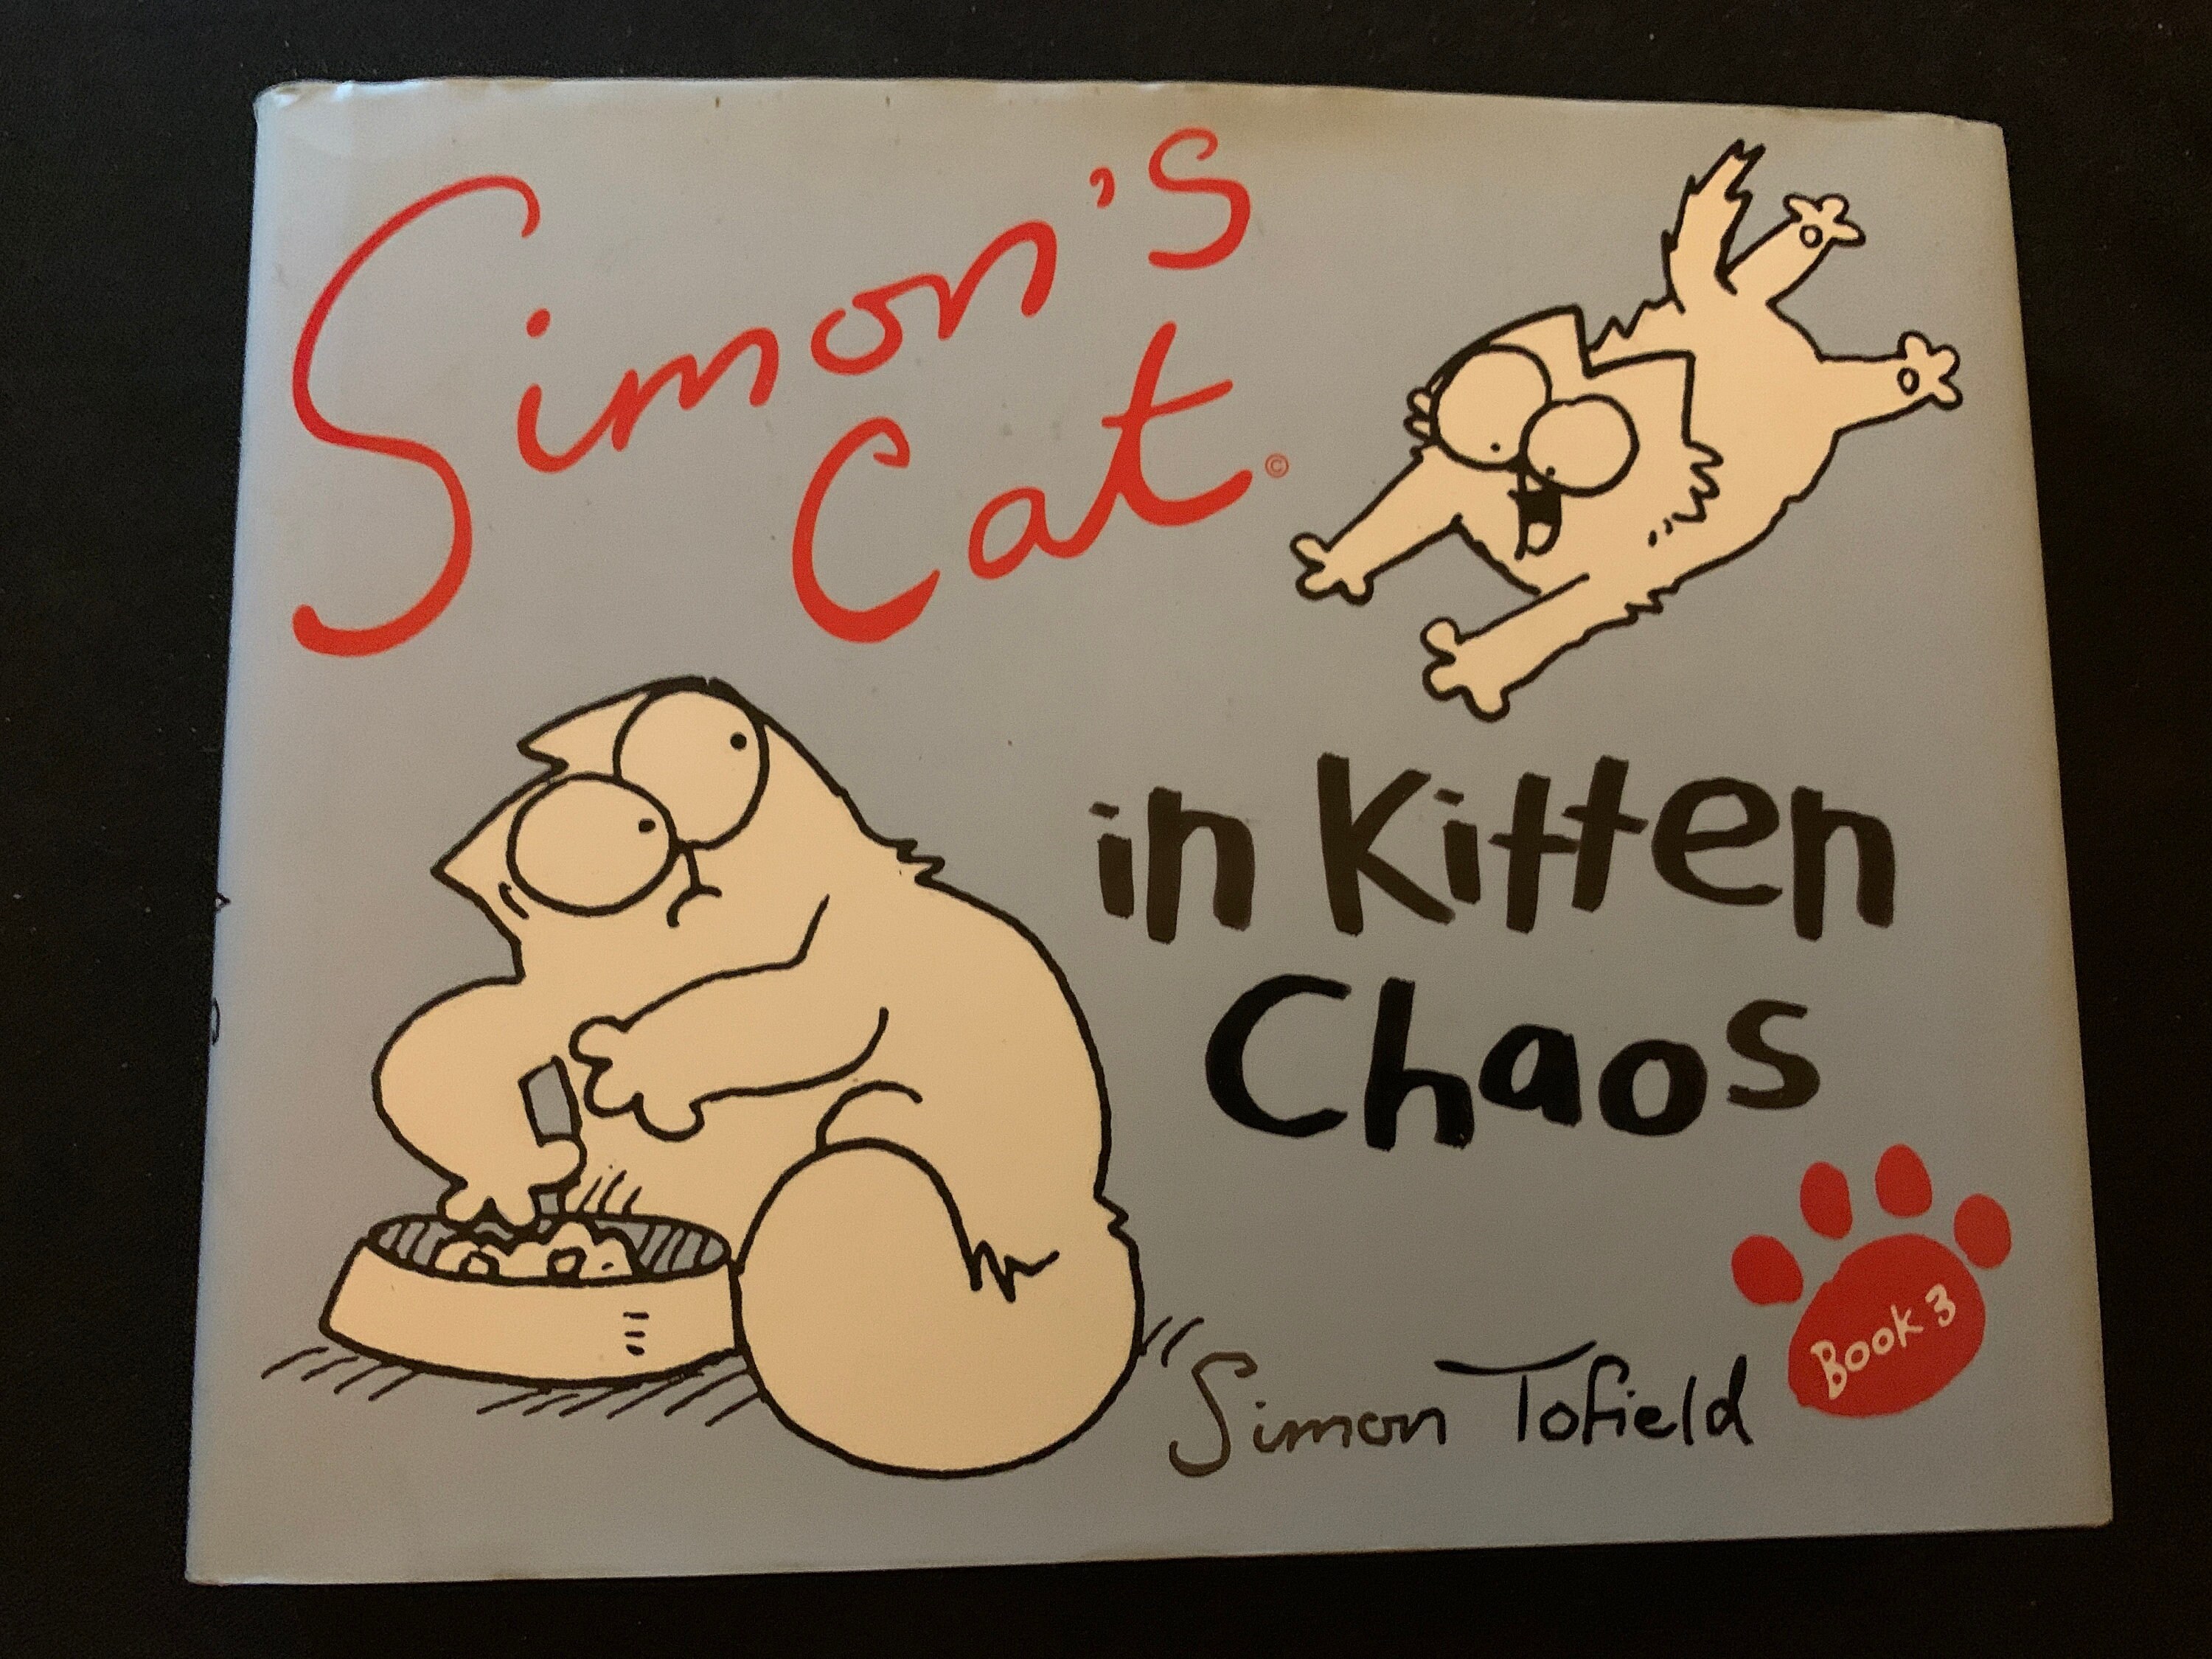 Simon's
Cat©
in Kitten
Chaos
Book 3
Simon Tofield